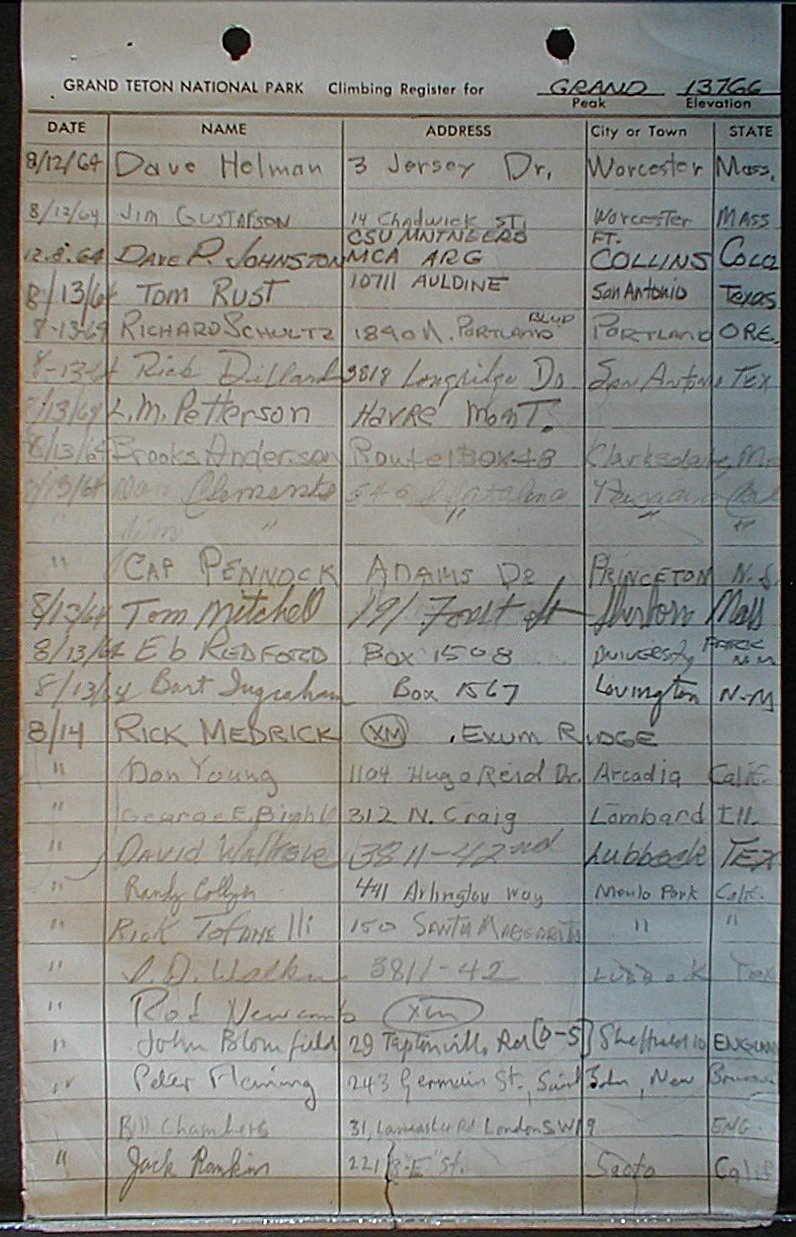 GRAND TETON NATIONAL PARK Climbing Register for GRAND 13766
Peak Elevation
DATE NAME ADDRESS City or Town STATE
8/12/64 Dave Helman 3 Jersey Dr, Worcester Mass,
8/12/64 JIM GUSTAFSON 14 Chadwick ST, Worcester MASS
12.8.64 DAVE P. JOHNSTON CSU MNTNEERS MCA ARG FT. COLLINS COLO
8/13/64 TOM RUST 10711 AULDINE San Antonio Texas
8-13-64 RICHARD SCHULTZ 1890 N. PORTLAND BLVD PORTLAND ORE.
8-13-64 Rick Dillard 3818 Longridge Dr San Antonio TEX
8/13/64 L.M. Petterson HAVRE MONT.
8/13/64 Brooks Anderson Route 1 BOX 48 Clarksdale, Miss
8/13/64 Dan Clements Catalina
" Jim " " " "
" CAP PENNOCK ADAMS DR PRINCETON N.J.
8/13/64 Tom Mitchell 191 Forest St Mass
8/13/64 Eb REDFORD BOX 1508 UNIVERSITY PARK N.M
8/13/64 Bart Ingraham Box 1567 Lovington N-M
8/14 RICK MEDRICK XM . EXUM RIDGE
" Don Young 1104 Hugo Reid Dr. Arcadia Calif.
" George E. 312 N. Craig Lombard Ill.
" DAVID 3811-42nd Lubbock TEX
" Randy 441 Arlington Way Menlo Park Calif.
" RICK TOFANElli 150 SANTA MARGARITA " "
" 3811-42 LUBBOCK Tex
" Rod Newcomb XM
" John Blomfield 29 Taptonville Rd [D-S] Sheffield 10 ENGLAND
" Peter Fleming 243 Germain St., Saint John, New Brunswick
Bill Chambers 31, Lancaster Rd London SW19 ENG.
" Jack Rankin "E" St. Sacto Calif